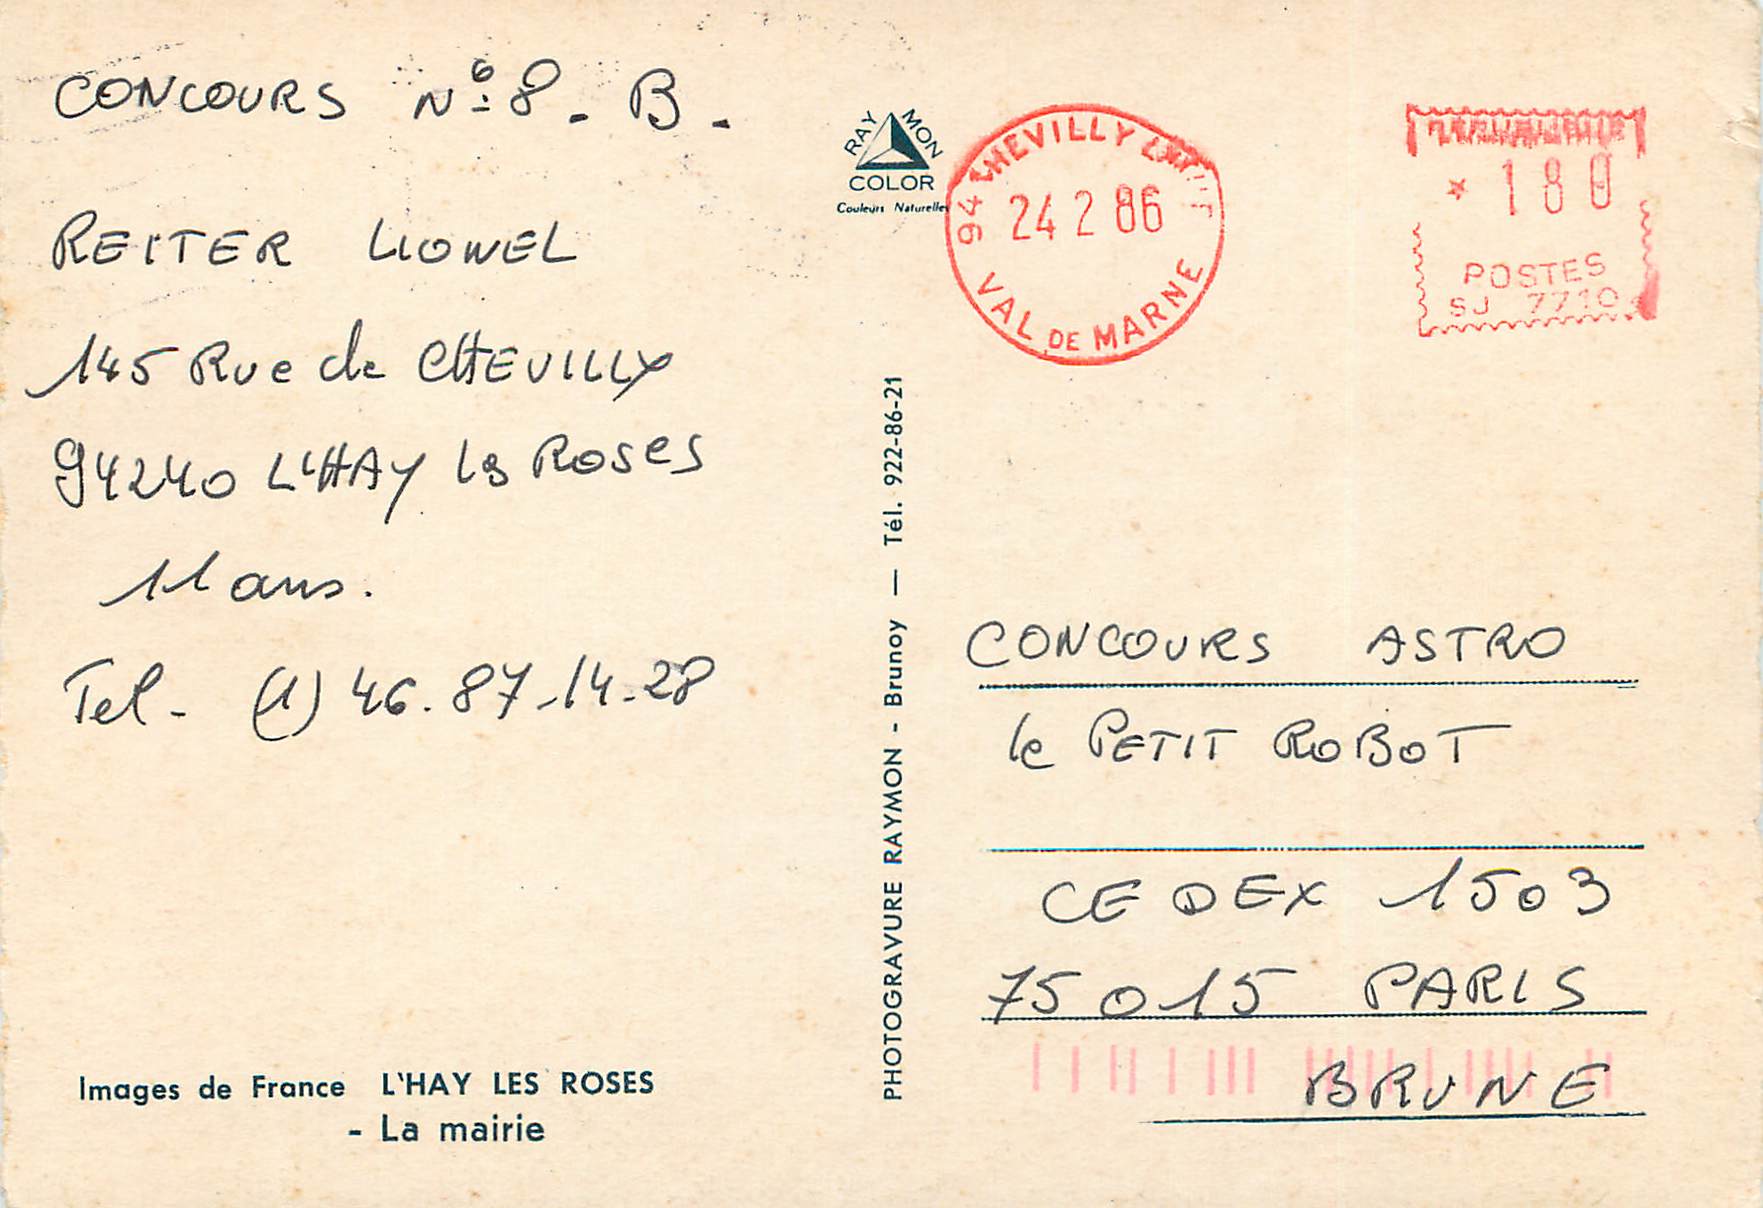 CONCOURS N° 8 - B -
REITER LIONEL
145 Rue de CHEVILLY
94240 L'HAY les Roses
11 ans.
Tel - (1) 46.87.14.28
Images de France L'HAY LES ROSES
- La mairie
RAYMON
COLOR
Couleurs Naturelles
PHOTOGRAVURE RAYMON - Brunoy — Tél. 922-86-21
94 CHEVILLY
24 2 86
VAL DE MARNE
* 180
POSTES
SJ 7710
CONCOURS ASTRO
le PETIT ROBOT
CEDEX 1503
75015 PARIS
BRUNE